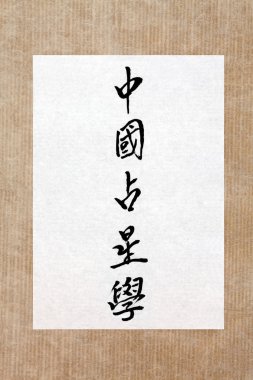 中國占星學